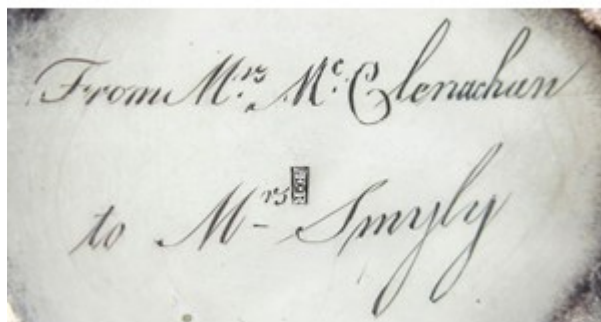 From Mrs. Mc. Clenachan
to Mrs Smyly